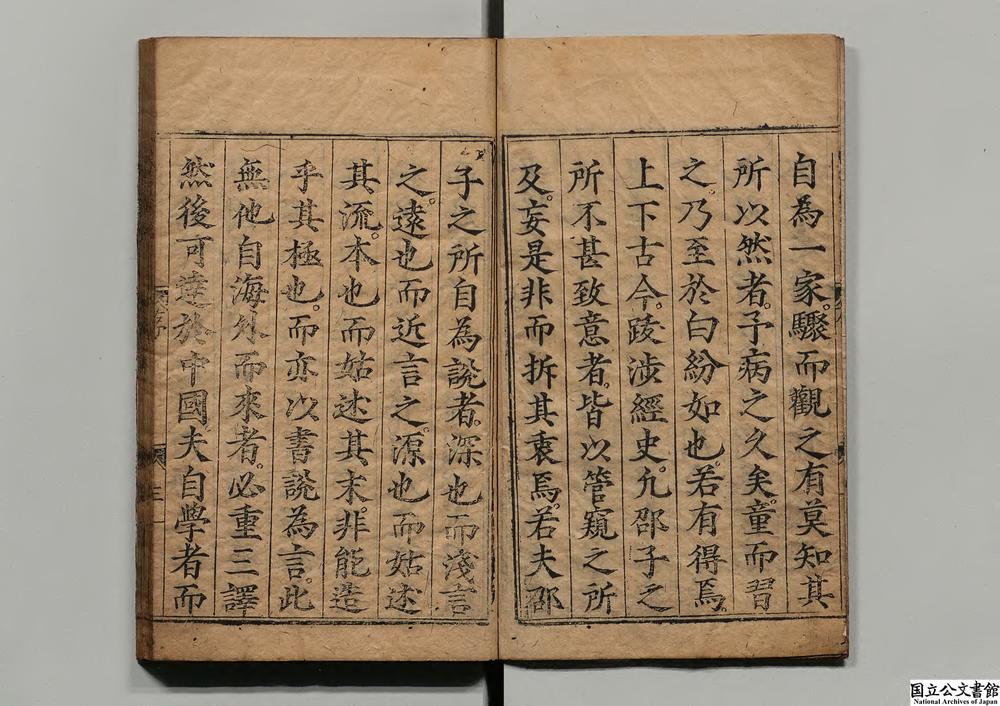 自為一家。驟而觀之有莫知其
所以然者。予病之久矣。童而習
之。乃至於白紛如也。若有得焉
上下古今。䧙涉經史。凡邵子之
所不甚致意者。皆以管窺之所
及。妄是非而折其衷焉。若夫邵
子之所自為說者。深也而淺言
之。遠也而近言之。源也而姑述
其流。本也而姑述其末。非能造
乎其極也。而亦以書說為言。此
無他自海外而來者。必重三譯
然後可達於中國夫自學者而
三
国立公文書館
National Archives of Japan